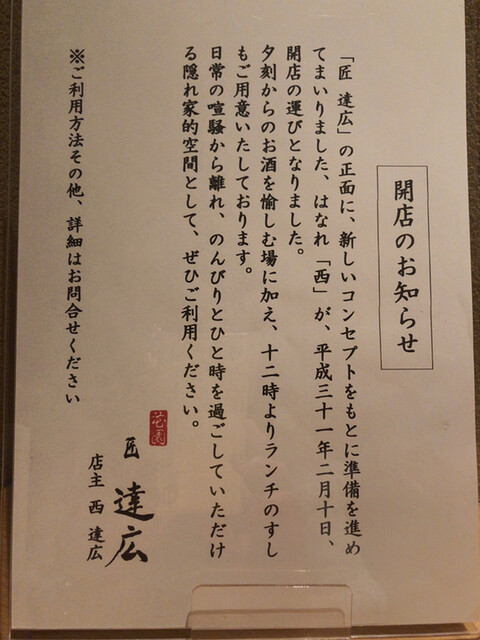 開店のお知らせ
「匠 達広」の正面に、新しいコンセプトをもとに準備を進め
てまいりました、はなれ「西」が、平成三十一年二月十日、
開店の運びとなりました。
夕刻からのお酒を愉しむ場に加え、十二時よりランチのすし
もご用意いたしております。
日常の喧騒から離れ、のんびりとひと時を過ごしていただけ
る隠れ家的空間として、ぜひご利用ください。
匠 達広
店主 西 達広
※ご利用方法その他、詳細はお問合せください